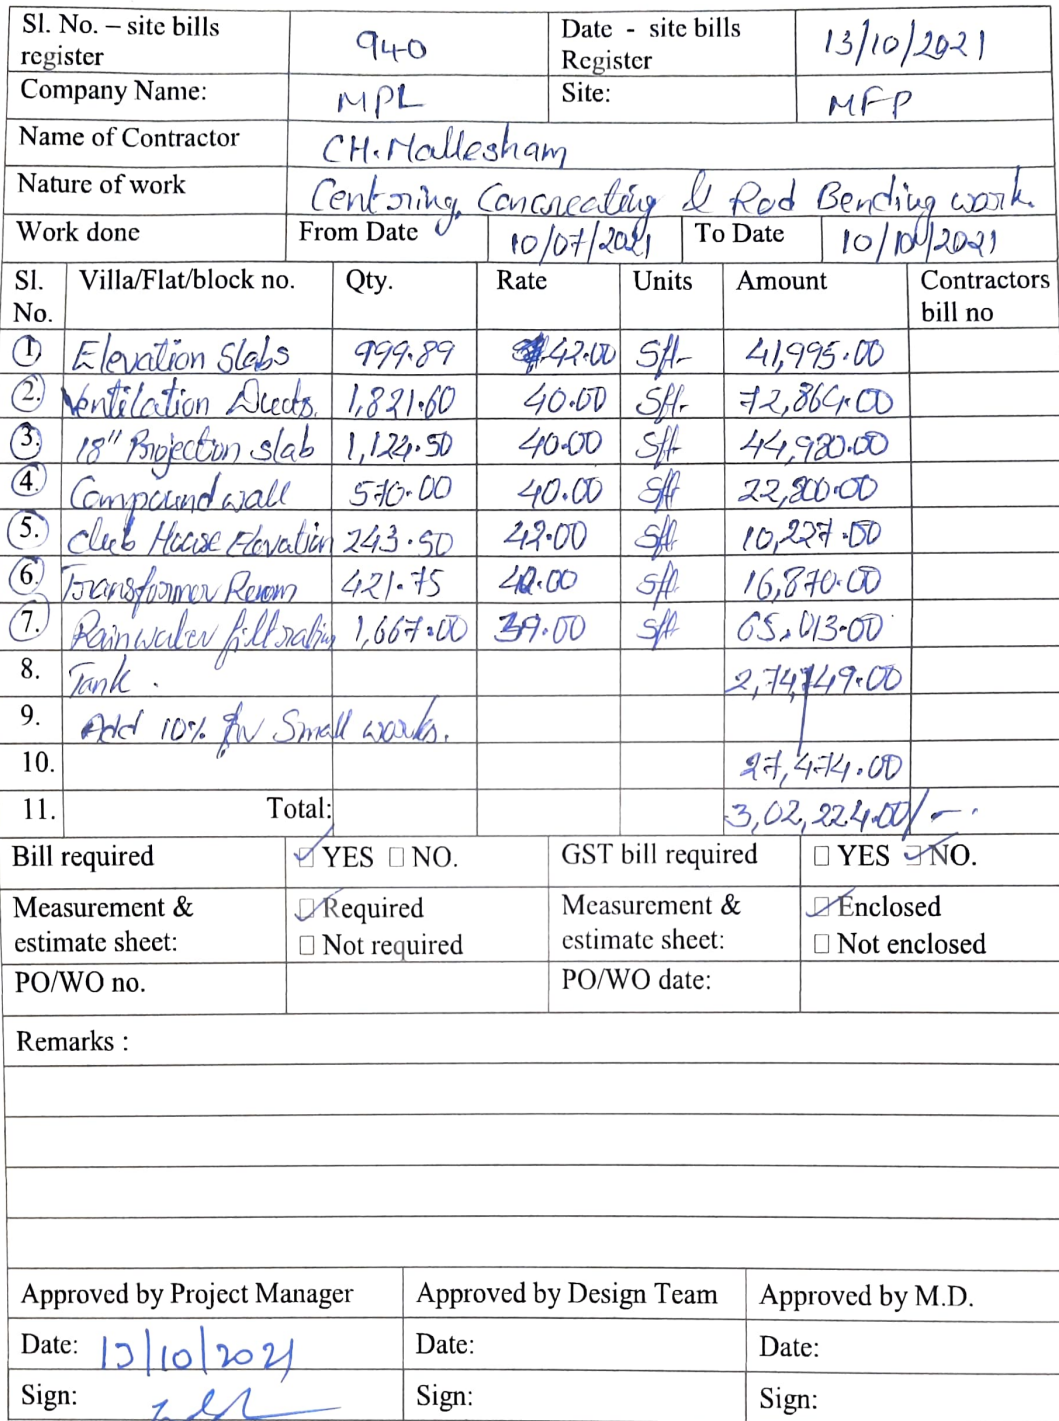 Sl. No. – site bills register 940 Date - site bills Register 13/10/2021
Company Name: MPL Site: MFP
Name of Contractor CH. Mallesham
Nature of work Centoring, Concreating & Rod Bending work.
Work done From Date 10/07/2021 To Date 10/10/2021
Sl. No. Villa/Flat/block no. Qty. Rate Units Amount Contractors bill no
1 Elevation Slabs 999.89 42.00 Sft 41,995.00
2. Ventilation Ducts. 1,821.60 40.00 Sft. 72,864.00
3. 18" Projection slab 1,124.50 40.00 Sft 44,980.00
4. Compound wall 570.00 40.00 Sft 22,800.00
5. Club House Elevation 243.50 42.00 Sft 10,227.00
6. Transformer Room 421.75 40.00 Sft. 16,870.00
7. Rainwater filtration 1,667.00 39.00 Sft 65,013.00
8. Tank. 2,74,749.00
9. Add 10% for Small works.
10. 27,474.00
11. Total: 3,02,224.00/-
Bill required ☑ YES ☐ NO. GST bill required ☐ YES ☑ NO.
Measurement & estimate sheet: ☑ Required Measurement & estimate sheet: ☑ Enclosed
☐ Not required ☐ Not enclosed
PO/WO no. PO/WO date:
Remarks :
Approved by Project Manager Approved by Design Team Approved by M.D.
Date: 13/10/2021 Date: Date:
Sign: Sign: Sign: